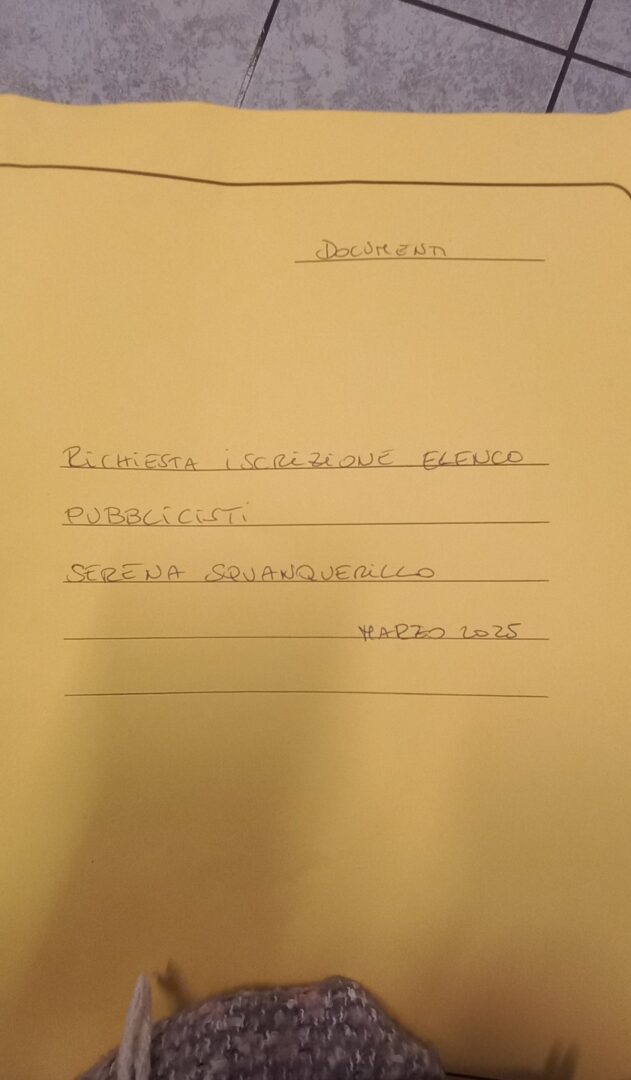 DOCUMENTI
RICHIESTA ISCRIZIONE ELENCO
PUBBLICISTI
SERENA SQUANQUERILLO
MARZO 2025